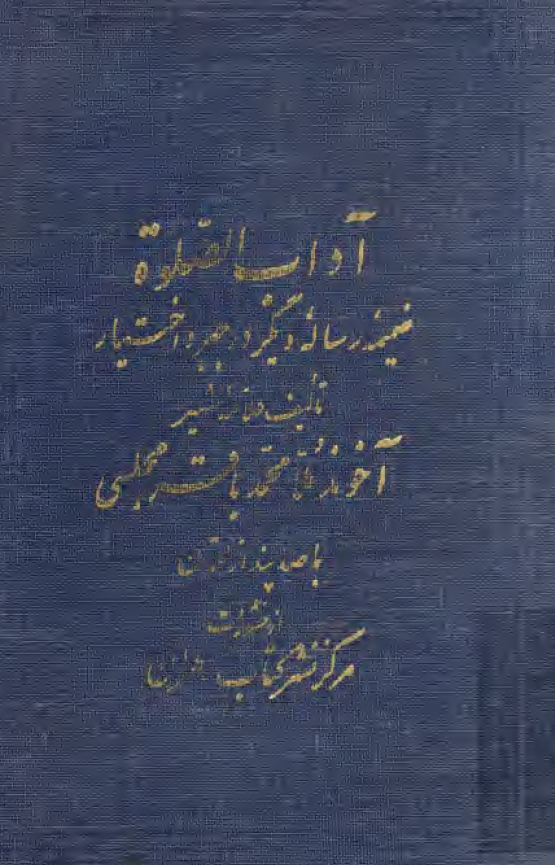 آداب الصلوة
ضمیمه رساله دیگر در جبر و اختیار
تألیف
آخوند ملا محمد باقر مجلسی
با صد پند از
از نشریات
مرکز نشر کتاب